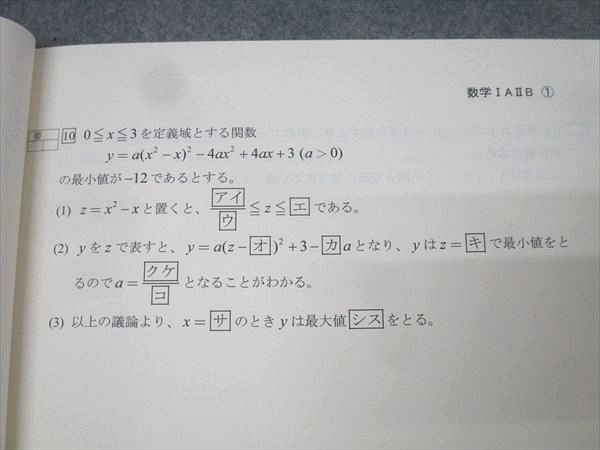 数学ⅠAⅡB ①
10 0≦x≦3を定義域とする関数
y=a(x²−x)²−4ax²+4ax+3 (a>0)
の最小値が−12であるとする。
(1) z=x²−xと置くと、アイ/ウ≦z≦エである。
(2) yをzで表すと、y=a(z−オ)²+3−カaとなり、yはz=キで最小値をと
るのでa=クケ/コとなることがわかる。
(3) 以上の議論より、x=サのときyは最大値シスをとる。